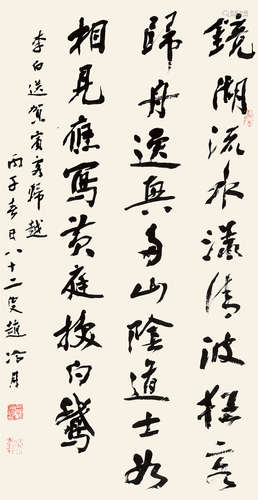 鏡湖流水漾清波狂客
歸舟逸興多山陰道士如
相見應寫黄庭換白鵞
李白送賀賓客歸越
丙子春日八十二叟趙冷月